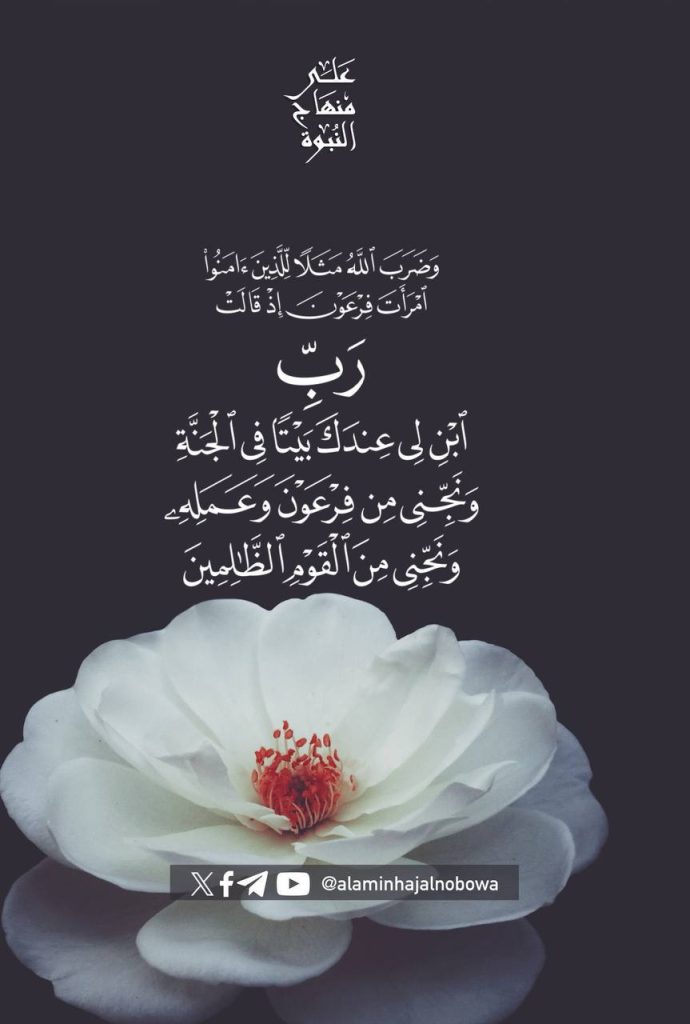 عَلَى
مِنهَاج
النُّبُوة
وَضَرَبَ ٱللَّهُ مَثَلًا لِّلَّذِينَ ءَامَنُوا۟
ٱمْرَأَتَ فِرْعَوْنَ إِذْ قَالَتْ
رَبِّ
ٱبْنِ لِى عِندَكَ بَيْتًا فِى ٱلْجَنَّةِ
وَنَجِّنِى مِن فِرْعَوْنَ وَعَمَلِهِۦ
وَنَجِّنِى مِنَ ٱلْقَوْمِ ٱلظَّٰلِمِينَ
@alaminhajalnobowa